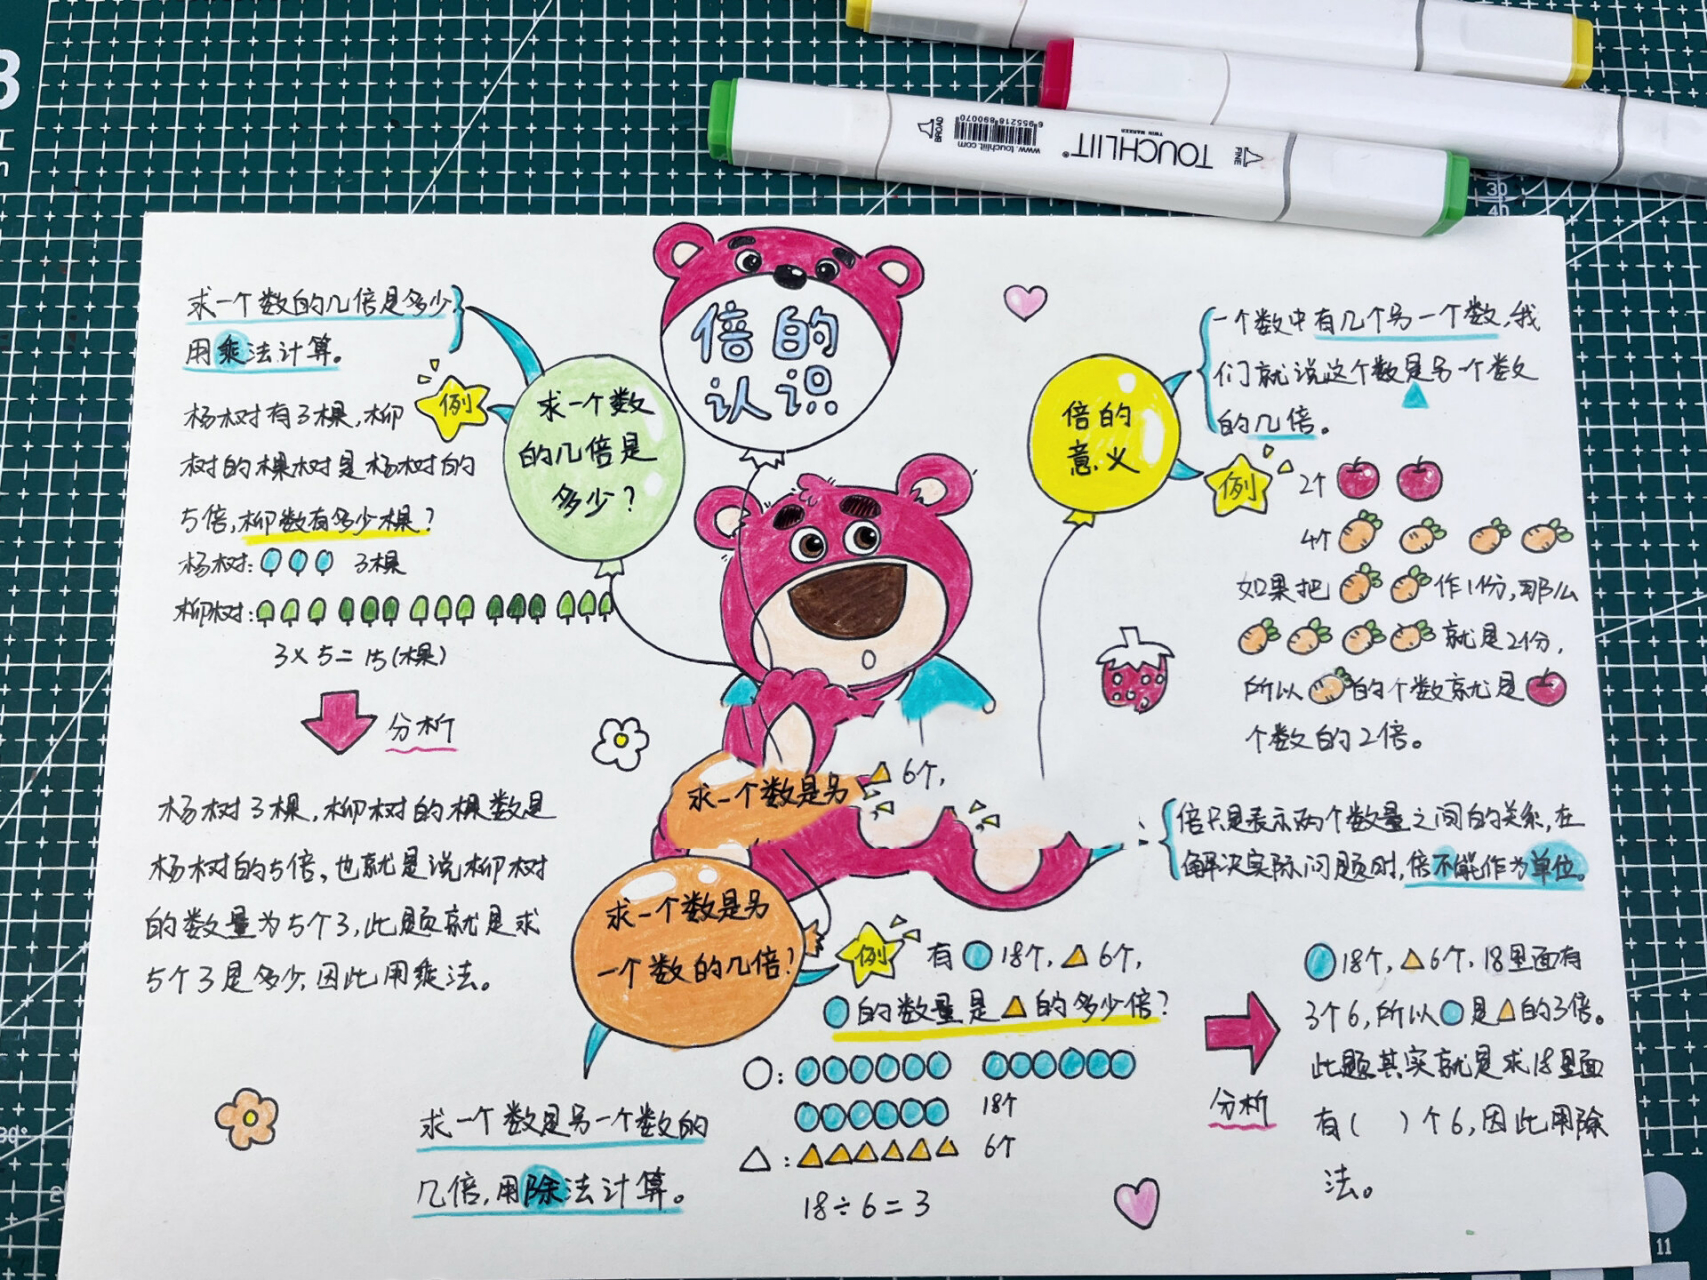 TOUCHLIIT
TWIN MARKER
FINE
BROAD
www.touchliit.com
6955218890070
倍的
认识
求一个数的几倍是多少
用乘法计算。
例
求一个数
的几倍是
多少?
杨树有3棵,柳
树的棵树是杨树的
5倍,柳数有多少棵?
杨树: 3棵
柳树:
3×5=15(棵)
分析
杨树3棵,柳树的棵数是
杨树的5倍,也就是说柳树
的数量为5个3,此题就是求
5个3是多少,因此用乘法。
倍的
意义
一个数中有几个另一个数,我
们就说这个数是另一个数
的几倍。
例
2个
4个
如果把 作1份,那么
就是2份,
所以 的个数就是
个数的2倍。
倍只是表示两个数量之间的关系,在
解决实际问题时,倍不能作为单位。
求一个数是另
6个,
求一个数是另
一个数的几倍?
例
有 18个, 6个,
的数量是 的多少倍?
18个
6个
18÷6=3
求一个数是另一个数的
几倍,用除法计算。
分析
18个, 6个,18里面有
3个6,所以 是 的3倍。
此题其实就是求18里面
有( )个6,因此用除
法。
30
40
11